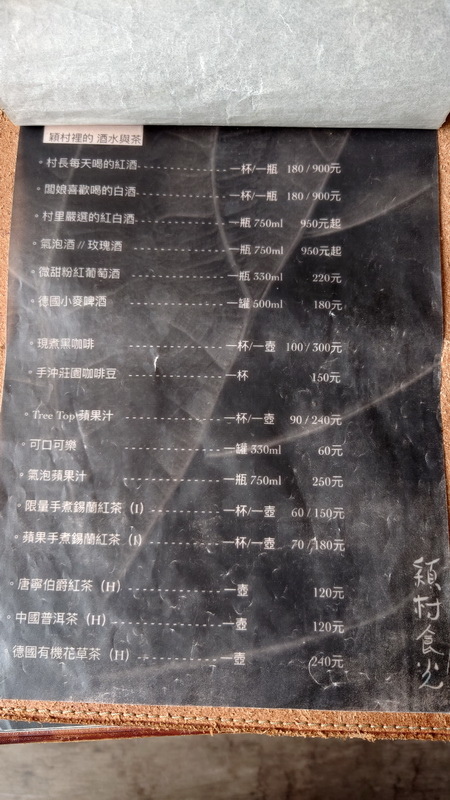 穎村裡的 酒水與茶
村長每天喝的紅酒 一杯/一瓶 180 / 900元
闆娘喜歡喝的白酒 一杯/一瓶 180 / 900元
村里嚴選的紅白酒 一瓶 750ml 950元起
氣泡酒 // 玫瑰酒 一瓶 750ml 950元起
微甜粉紅葡萄酒 一瓶 330ml 220元
德國小麥啤酒 一罐 500ml 180元
現煮黑咖啡 一杯/一壺 100 / 300元
手沖莊園咖啡豆 一杯 150元
Tree Top 蘋果汁 一杯/一壺 90 / 240元
可口可樂 一罐 330ml 60元
氣泡蘋果汁 一瓶 750ml 250元
限量手煮錫蘭紅茶（I） 一杯/一壺 60 / 150元
蘋果手煮錫蘭紅茶（I） 一杯/一壺 70 / 180元
唐寧伯爵紅茶（H） 一壺 120元
中國普洱茶（H） 一壺 120元
德國有機花草茶（H） 一壺 240元
穎村食光